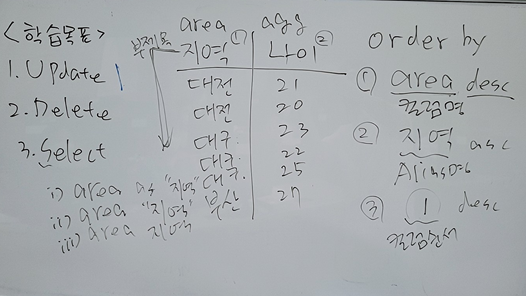 <학습목표>
1. Update
2. Delete
3. Select
i) area as "지역"
ii) area "지역"
iii) area 지역
area agg
지역 ① 나이 ②
대전 21
대전 20
대구 23
대구 22
대구 25
부산 27
order by
① area desc
컬럼명
② 지역 asc
③ 1 desc
컬럼순서